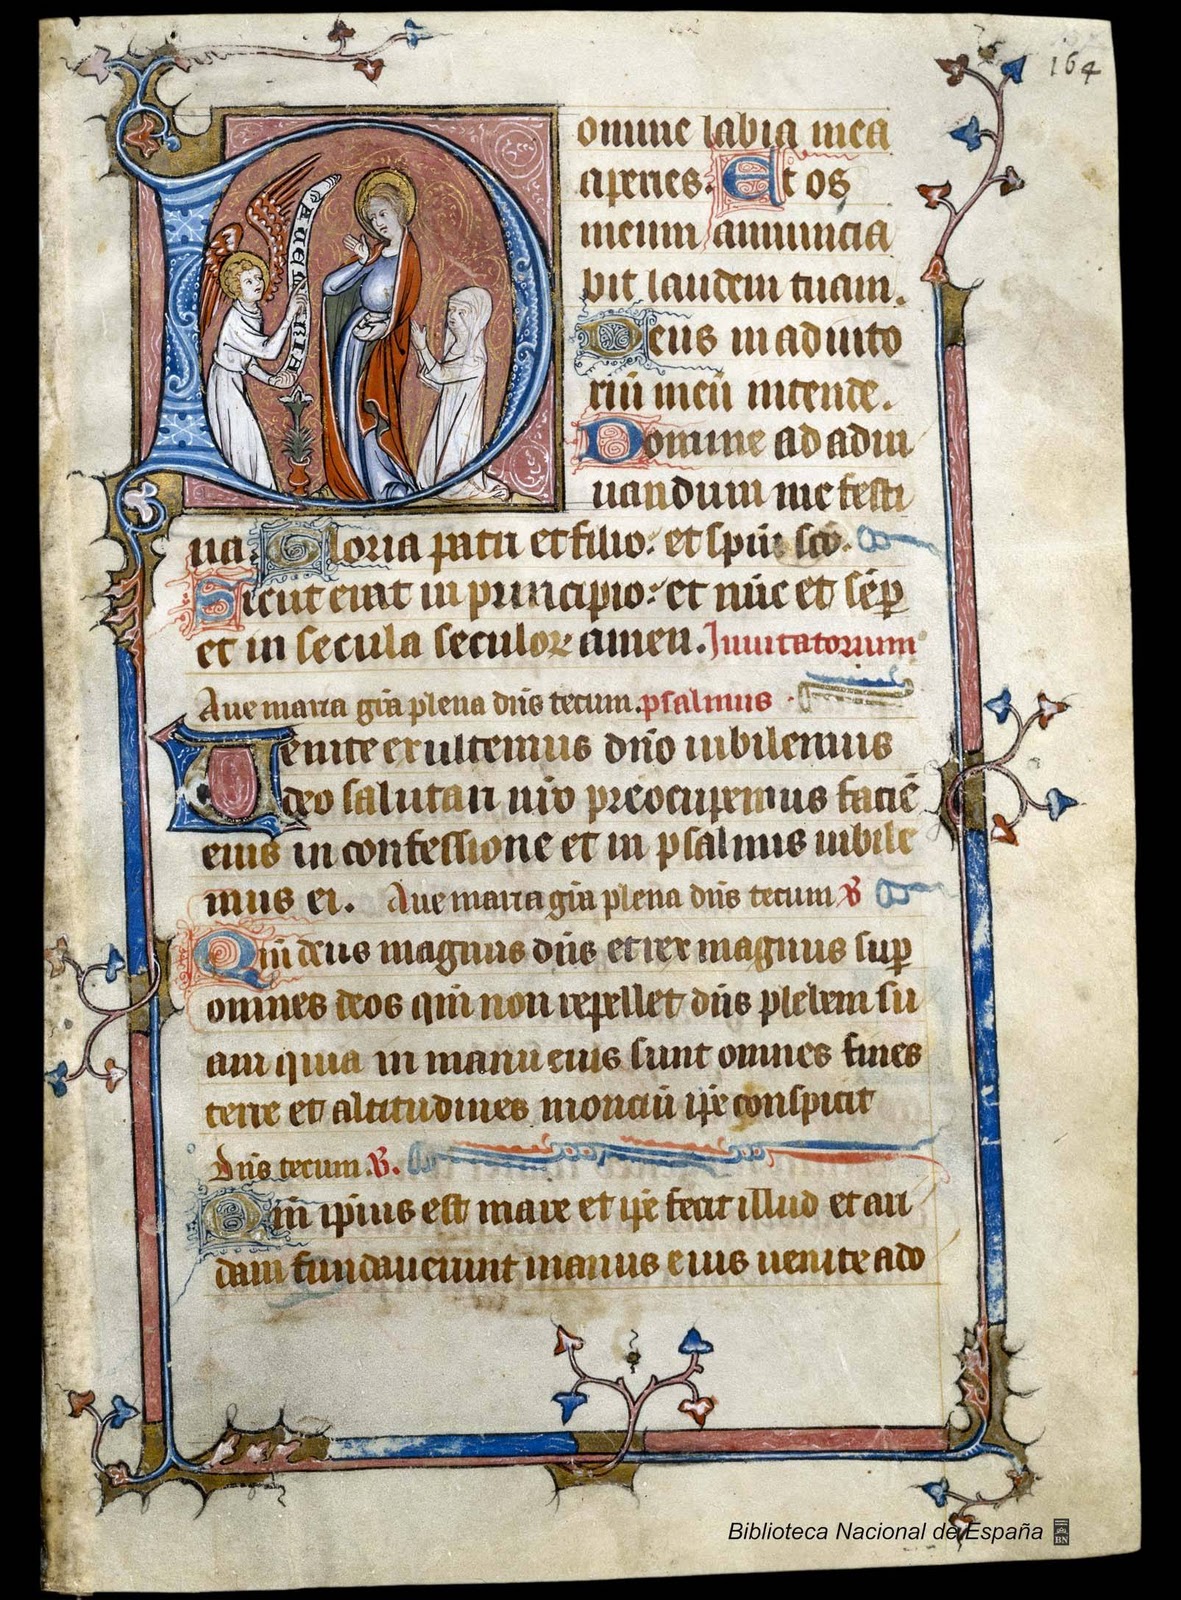 164
AUE MARIA
Domine labia mea
aperies. Et os
meum annuncia
bit laudem tuam.
Deus in adiuto
riū meū intende.
Domine ad adiu
uandum me festi
na. Gloria patri et filio. et spiū sc̄o.
Sicut erat in principio. et nūc et sēp̄
et in secula seculoꝝ amen. Inuitatorium
Aue maria gr̄a plena dn̄s tecum. psalmus
Uenite exultemus dn̄o iubilemus
deo salutari nr̄o preocupemus faciē
eius in confessione et in psalmis iubile
mus ei. Aue maria gr̄a plena dn̄s tecum ℣
Qm̄ deus magnus dn̄s et rex magnus sup̄
omnes deos qui non repellet dn̄s plebem su
am quia in manu eius sunt omnes fines
terre et altitudines monciū ip̄e conspicit
Dn̄s tecum. ℣.
Qm̄ ipius est mare et ip̄e fecit illud et ari
dam fundauerunt manus eius uenite ado
Biblioteca Nacional de España